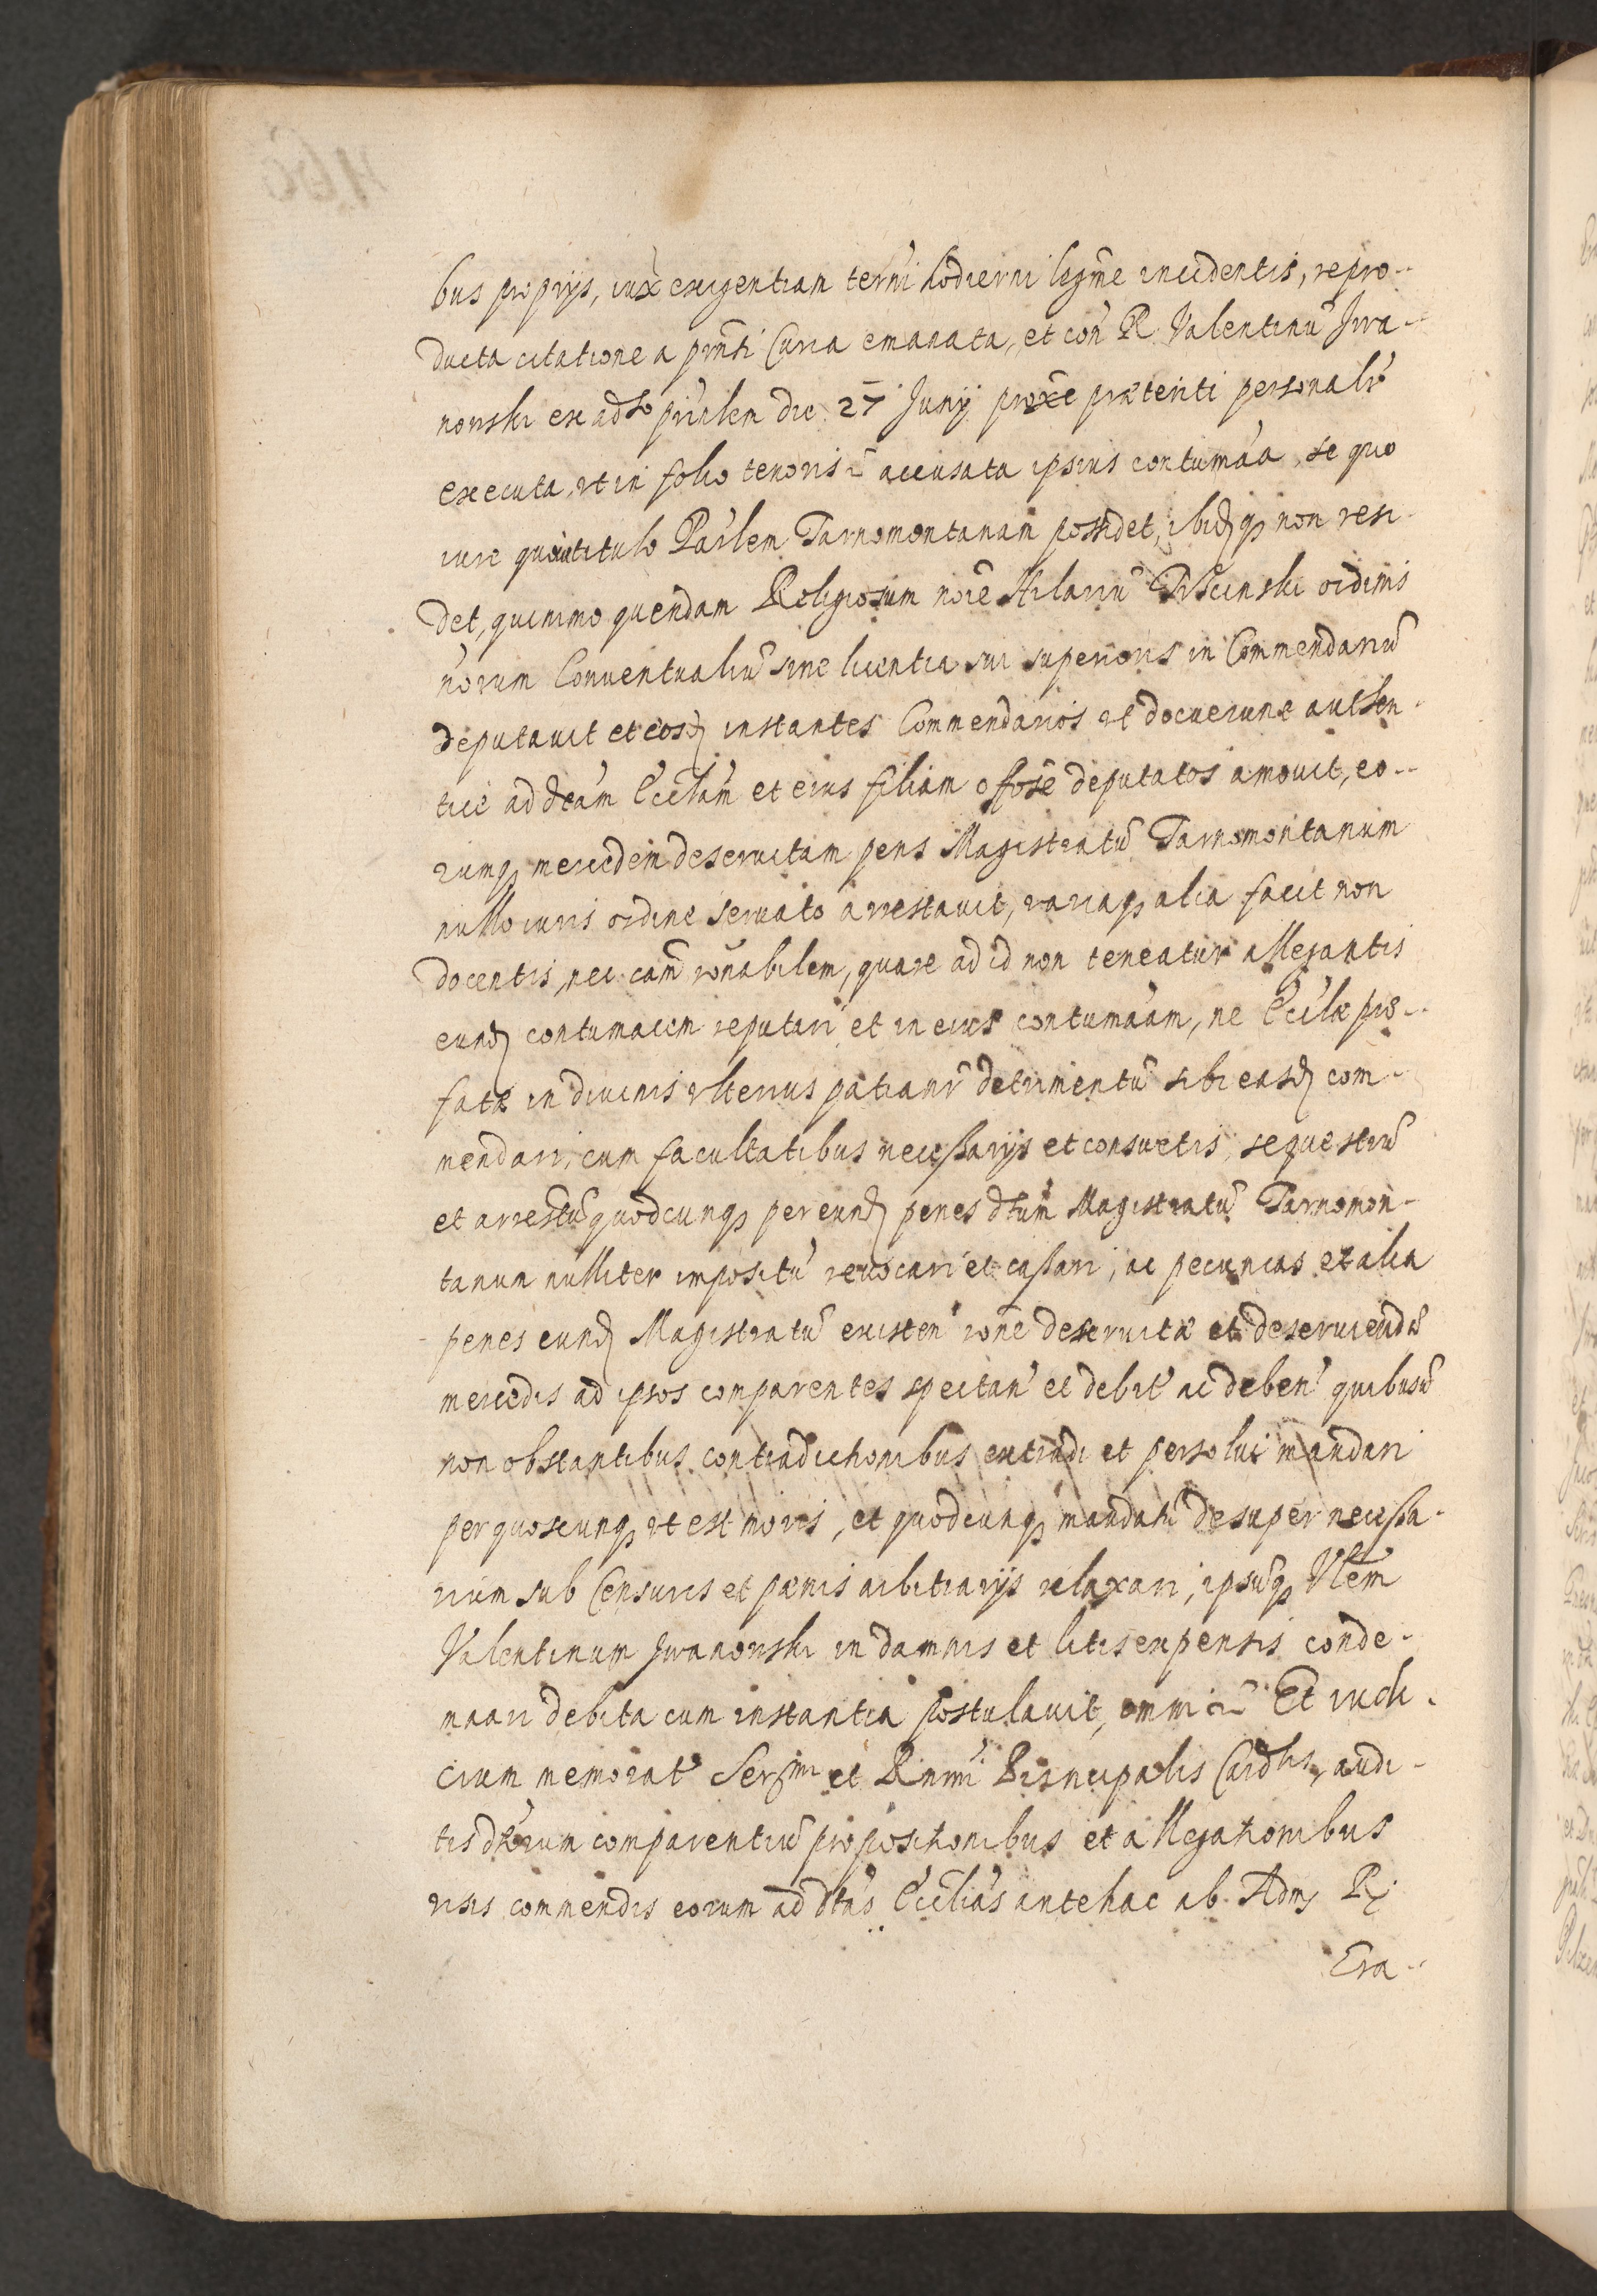 bus proprys, iux̃ exigentiam terñi hodierni legm̃e incidentis, repro-
ducta citatione a pñti Curia emanata, et con̄ R. Valentinũ Jwa-
nowski ex ad̃so prĩalem die 27 Junij prox̃e præteriti personalr̃
executa, ut in folio tenoris &c̃ accusata ipsius contumãa, se quo
iure quoue titulo Parl̃em Tarnomontanam possidet, ibidq̃ non resi-
det, quinimo quendam Religiosum noĩe Hilariũ ordinis
ñorum Conuentualiũ sine licentia sui superioris in Commendariũ
deputauit et eosd̃ instantes Commendarios ut docuerunt authen-
tice ad dc̃am Eccl̃am et eius filiam deputatos amouit, eo-
rumq̃ mercedem deseruitam pens Magistratũ Tarnomontanum
nullo iuris ordine seruato arrestauit, variaq̃ alia facit non
docentis, nec cam̃ ron̄abilem, quare ad id non teneatur allegantis
eund̃ contumacem reputari et in eius contumãam, ne Eccl̃æ præ-
fatæ in diuinis ulterius patianr̃ detrimentũ sibi easd̃ com-
mendari, cum facultatibus necessarijs et consuetis, sequestrũ
et arrestũ quodcunq̃ per eund̃ penes dt̃um Magistratũ Tarnomon-
tanum nulliter impositũ reuocari et cassari, ac pecunias et alia
penes eund̃ Magistratũ existeñ rõne deseruitæ et deseruiendæ
mercedis ad ipsos comparentes spectañ et debit̃ ac debeñ quibusũ
non obstantibus contradictionibus extradi et persolui mandari
per quoscunq̃ ut est moris, et quodcunq̃ mandatũ desuper necessa-
rium sub Censuris et pænis arbitrarijs relaxari, ipsumq̃ Vl̃em
Valentinum Jwanowski in damnis et litis expensis conde-
mnari debita cum instantia postulauit, omni &c̃ Et iudi-
cium memorat̃ Serm̃i et Rm̃i Principalis Cardlis, audi-
tis dt̃orum comparentiũ propositionibus et allegationibus
visis commendis eorum ad dt̃as Eccl̃ias antehac ab Adm̃ R.
Era-